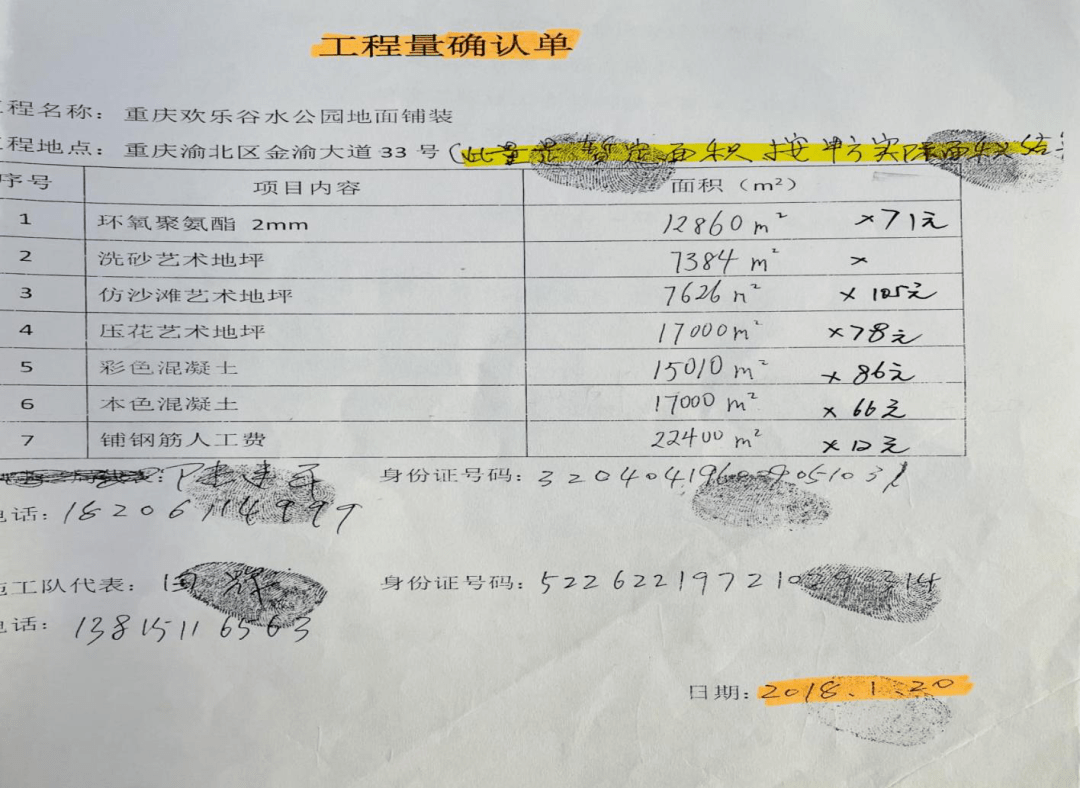 工程量确认单
程名称：重庆欢乐谷水公园地面铺装
程地点：重庆渝北区金渝大道 33 号（此量是暂定面积 按甲方实际面积结
序号 项目内容 面积（m²）
1 环氧聚氨酯 2mm 12860 m² ×71元
2 洗砂艺术地坪 7384 m² ×
3 仿沙滩艺术地坪 7626 m² ×105元
4 压花艺术地坪 17000 m² ×78元
5 彩色混凝土 15010 m² ×86元
6 本色混凝土 17000 m² ×66元
7 铺钢筋人工费 22400 m² ×12元
： 身份证号码：
电话：18206114999
施工队代表： 身份证号码：
电话：13815116563
日期：2018.1.20